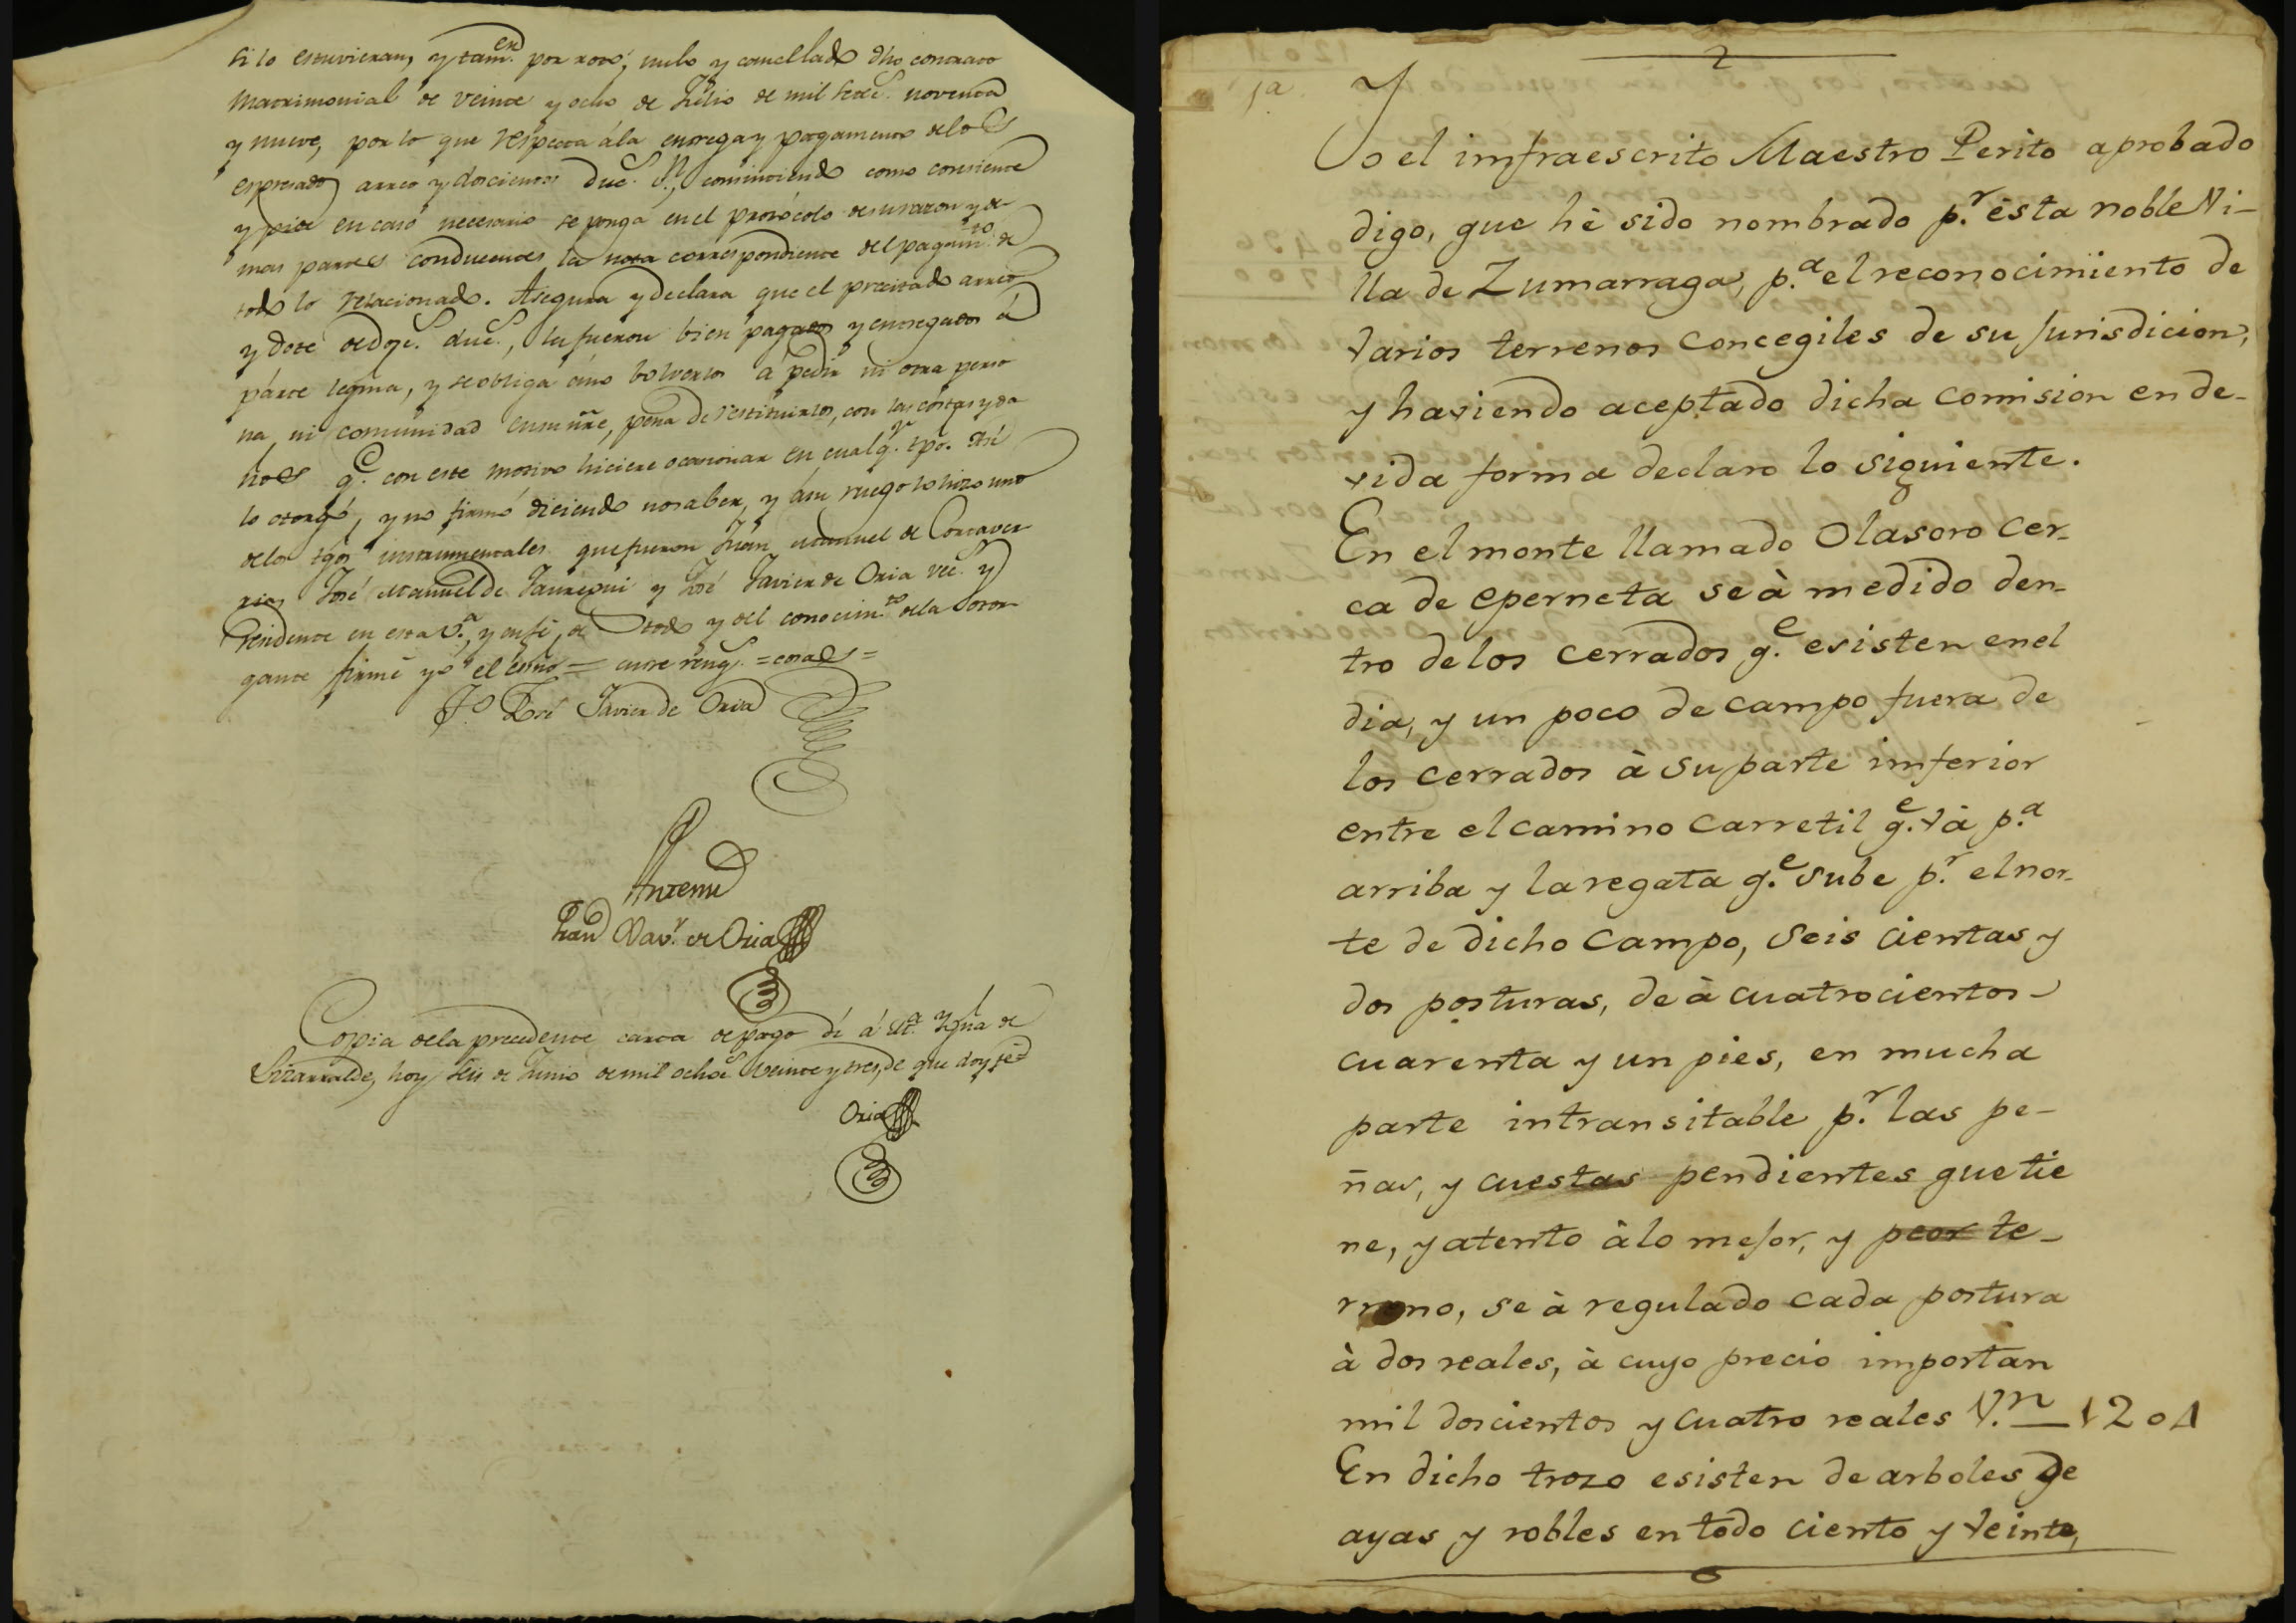 si lo estuvieran, y tamen. por roto, nulo y cancellado dho contrato
Matrimonial de veinte y ocho de Julio de mil setes. noventa
y nueve, por lo que respecta á la entrega y pagamento de los
espresados arreo y doscientos duc.s V.n, consintiendo como consiente
y pide en caso necesario se ponga en el protócolo de su razon y de
mas partes conducentes la nota correspondiente del pagam.to de
todo lo relacionado. Asegura y declara que el precitado arreo
y dote de doz.s duc.s, la fueron bien pagados y entregados á
parte legma, y se obliga á no bolverlos á pedir ni otra perso
na, ni comunidad en su ñre, pena de restituirlos, con las costas y da
ños q.e con este motivo hiciere ocasionar en cualq.r tpo. Asi
lo otorgó, y no firmó diciendo no saber, y á su ruego lo hizo uno
de los tgos instrumentales que fueron Juan Manuel de
José Manuel de Jauregui y José Javier de Oria vec.s y
residente en esta V.a, y en fé, de todo y del conocim.to de la Otor
gante firmé yo el esño = entre reng.s = cosa es =
T.o José Javier de Oria
Antemi
Juan Bav.r de Oria
Copia de la precedente carta de pago dí á M.a Ygna de
Lizarralde, hoy seis de Junio de mil ochos. veinte y tres, de que doy fé
Oria
2
1.a
Yo el imfraescrito Maestro Perito aprobado
digo, que hè sido nombrado p.r èsta noble Vi-
lla de Zumarraga, p.a el reconocimiento de
varios terrenos concegiles de su Jurisdicion,
y haviendo aceptado dicha comision en de-
vida forma declaro lo siguiente.
En el monte llamado Olasoro cer-
ca de eperneta se à medido den-
tro de los cerrados q.e esisten en el
dia, y un poco de campo fuera de
los cerrados à su parte imferior
entre el camino carretil q.e và p.a
arriba y la regata q.e sube p.r el nor-
te de dicho campo, seis cientas y
dos posturas, de à cuatrocientos
cuarenta y un pies, en mucha
parte intransitable p.r las pe-
ñas, y cuestas pendientes que tie
ne, y atento à lo mejor, y peor te-
rreno, se à regulado cada postura
à dos reales, à cuyo precio importan
mil doscientos y cuatro reales V.n — 1204
En dicho trozo esisten de arboles de
ayas y robles en todo ciento y veinte,